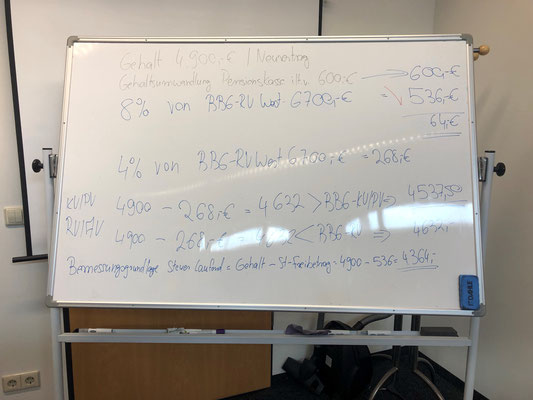 Gehalt 4.900,-€ / Neueintrag
Gehaltsumwandlung Pensionskasse i.H.v. 600,-€ → 600,-€
8% von BBG-RV West 6700,-€ = 536,-€
64,-€
4% von BBG-RV West 6.700,-€ = 268,-€
KV/PV 4900 - 268,-€ = 4632 > BBG-KV/PV ⇒ 4537,50
RV/AV 4900 - 268,-€ = 4632 < BBG-RV ⇒ 4632,-
Bemessungsgrundlage Steuer laufend = Gehalt - St-Freibetrag = 4900 - 536 = 4364,-